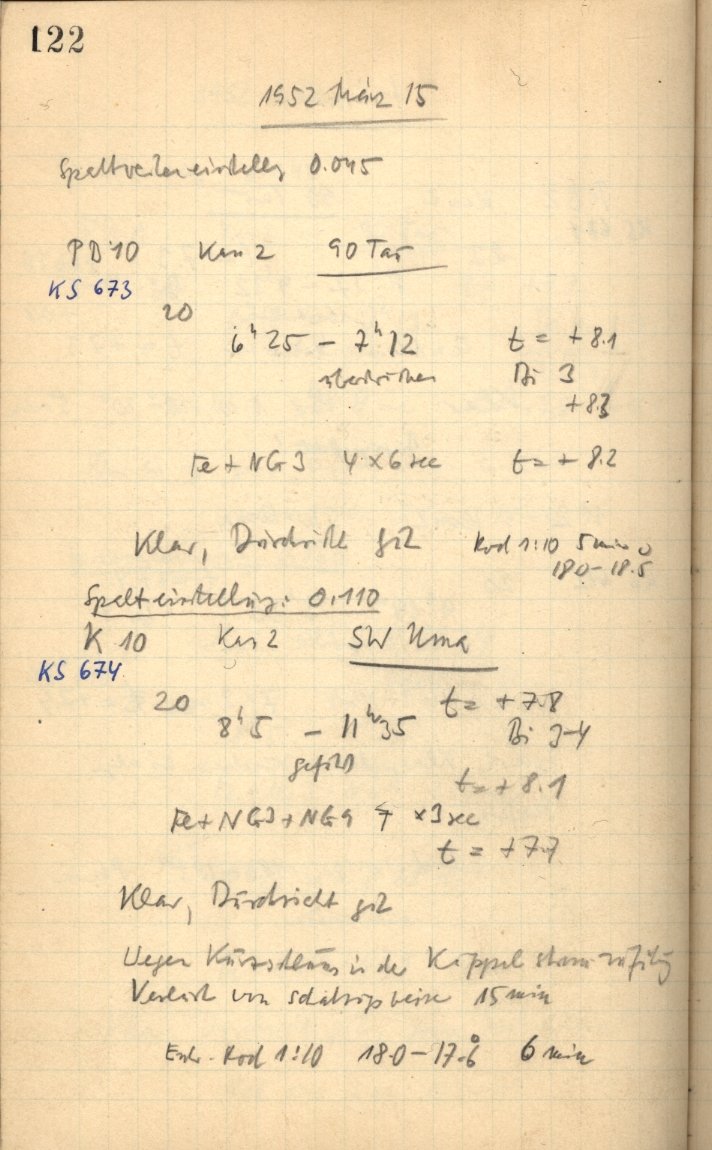 122
1952 März 15
Spaltweiteneinstellg 0.045
PD 10 Kas 2 90 Tau
KS 673
20
6ʰ 25 – 7ʰ 12 t = +8.1
Bi 3
+8.3
Fe + NG 3 4 × 6 sec t = +8.2
Klar, Durchsicht gut Rod 1:10 5 min
18.0–18.5
Spalteinstellung: 0.110
K 10 Kas 2 SW Uma
KS 674
20 t = +7.8
8ʰ 5 – 11ʰ 35 Bi 3-4
t = +8.1
Fe + NG3 + NG9 4 × 3 sec
t = +7.7
Klar, Durchsicht gut
Wegen Kurzschluss in der Kuppel
Verlust von 15 min
Entw. Rod 1:10 18.0–17.6° 6 min